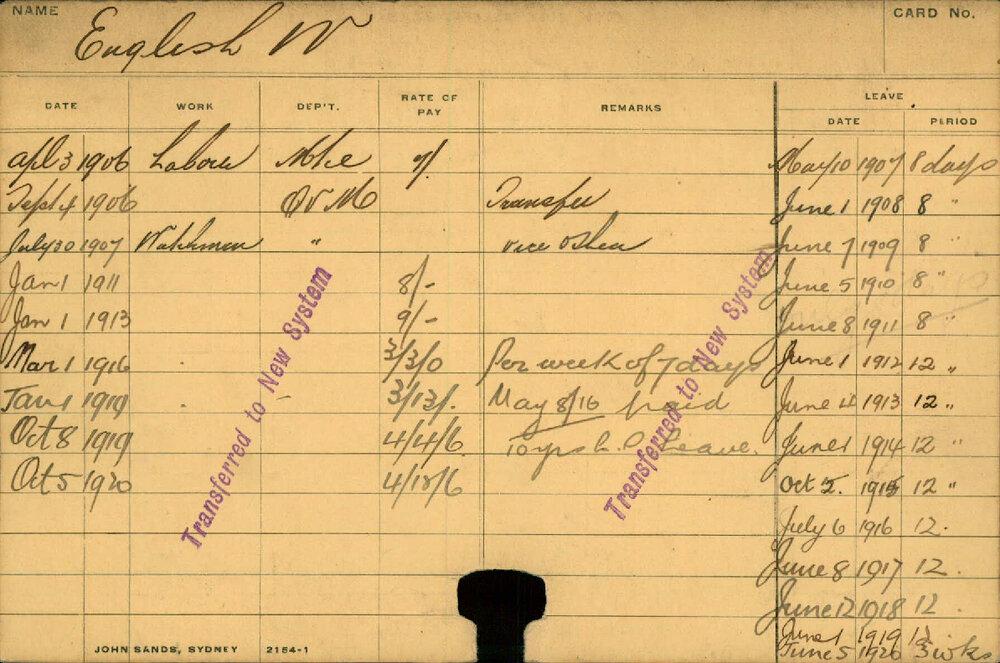 NAME
English W
CARD No.
DATE WORK DEP'T. RATE OF PAY REMARKS LEAVE
DATE PERIOD
Apl 3 1906 Labour 7/. May 10 1907 8 days
Sept 4 1906 Transfer June 1 1908 8 "
July 30 1907 Watchman " vice OShea June 7 1909 8 "
Jan 1 1911 8/- June 5 1910 8 "
Jan 1 1913 9/- June 8 1911 8 "
Mar 1 1916 3/3/0 Per week of 7 days June 1 1912 12 "
Jan 1 1919 3/13/. May 8/16 paid June 1913 12 "
Oct 8 1919 4/4/6 10 yrs Leave. June 1 1914 12 "
Oct 5 1920 4/12/6 Oct 2. 1915 12 "
July 6 1916 12.
June 8 1917 12.
June 12 1918 12.
June 1 1919 12
June 5 1920 3 wks
Transferred to New System
Transferred to New System
JOHN SANDS, SYDNEY 2154-1